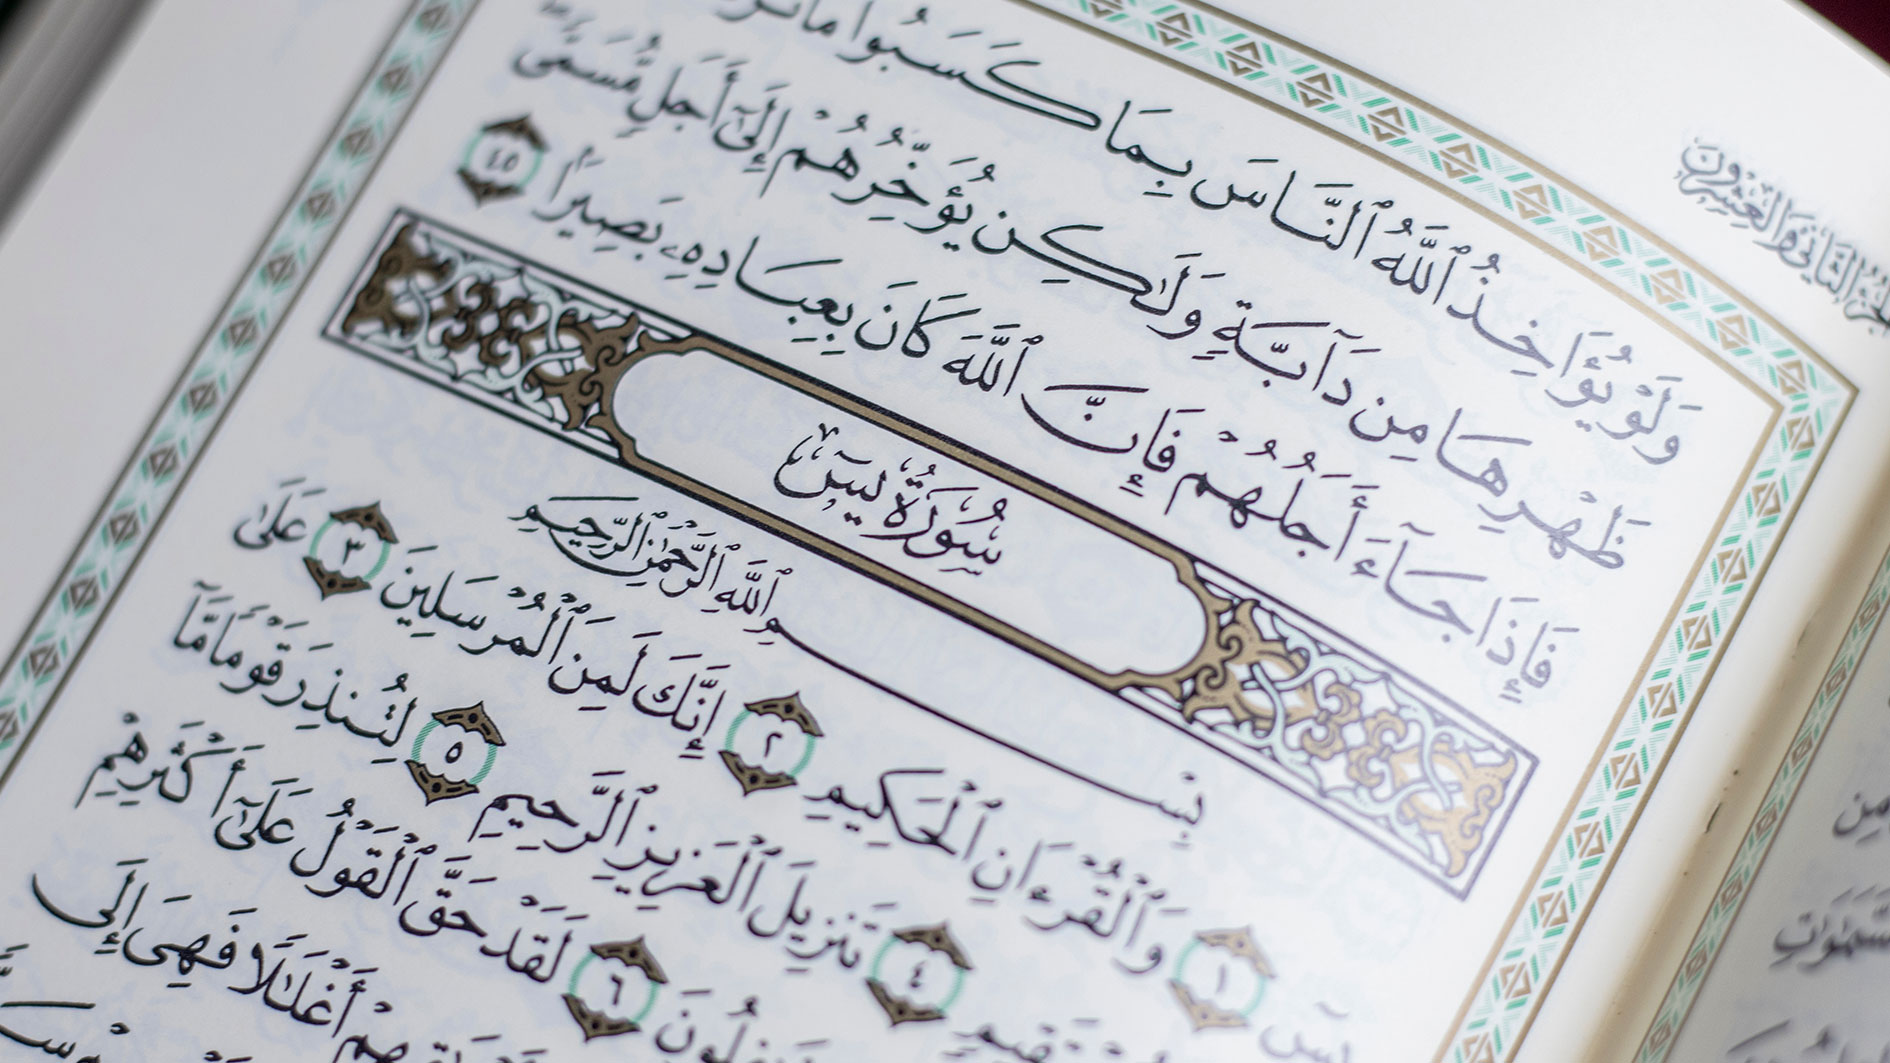 الجزء الثاني والعشرون
وَلَوْ يُؤَاخِذُ ٱللَّهُ ٱلنَّاسَ بِمَا كَسَبُوا۟ مَا
ظَهْرِهَا مِن دَآبَّةٍ وَلَـٰكِن يُؤَخِّرُهُمْ إِلَىٰٓ أَجَلٍ مُّسَمًّى
فَإِذَا جَآءَ أَجَلُهُمْ فَإِنَّ ٱللَّهَ كَانَ بِعِبَادِهِۦ بَصِيرًۢا ٤٥
سُورَةُ يسٓ
بِسْمِ ٱللَّهِ ٱلرَّحْمَـٰنِ ٱلرَّحِيمِ
يسٓ ١ وَٱلْقُرْءَانِ ٱلْحَكِيمِ ٢ إِنَّكَ لَمِنَ ٱلْمُرْسَلِينَ ٣ عَلَىٰ
٤ تَنزِيلَ ٱلْعَزِيزِ ٱلرَّحِيمِ ٥ لِتُنذِرَ قَوْمًا مَّآ
٦ لَقَدْ حَقَّ ٱلْقَوْلُ عَلَىٰٓ أَكْثَرِهِمْ
أَغْلَـٰلًا فَهِىَ إِلَى